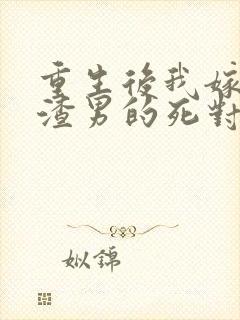 重生後我嫁
渣男的死對
姒錦